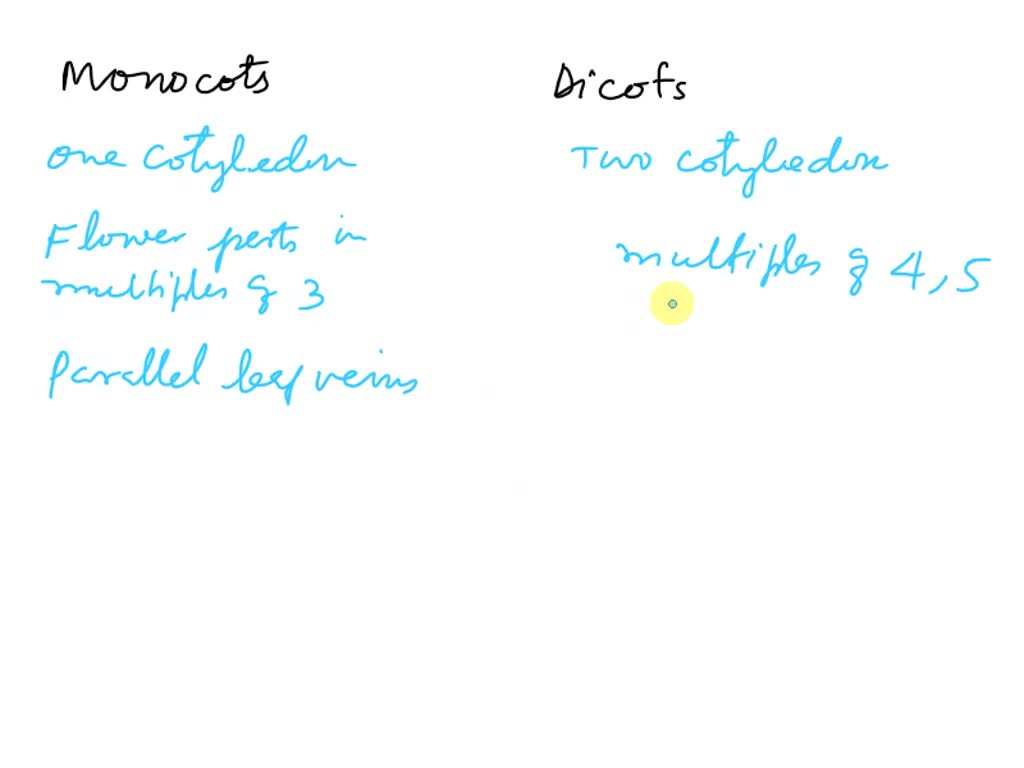 Monocots
one cotyledon
Flower parts in
multiples of 3
Parallel leaf veins
Dicots
Two cotyledon
multiples of 4, 5